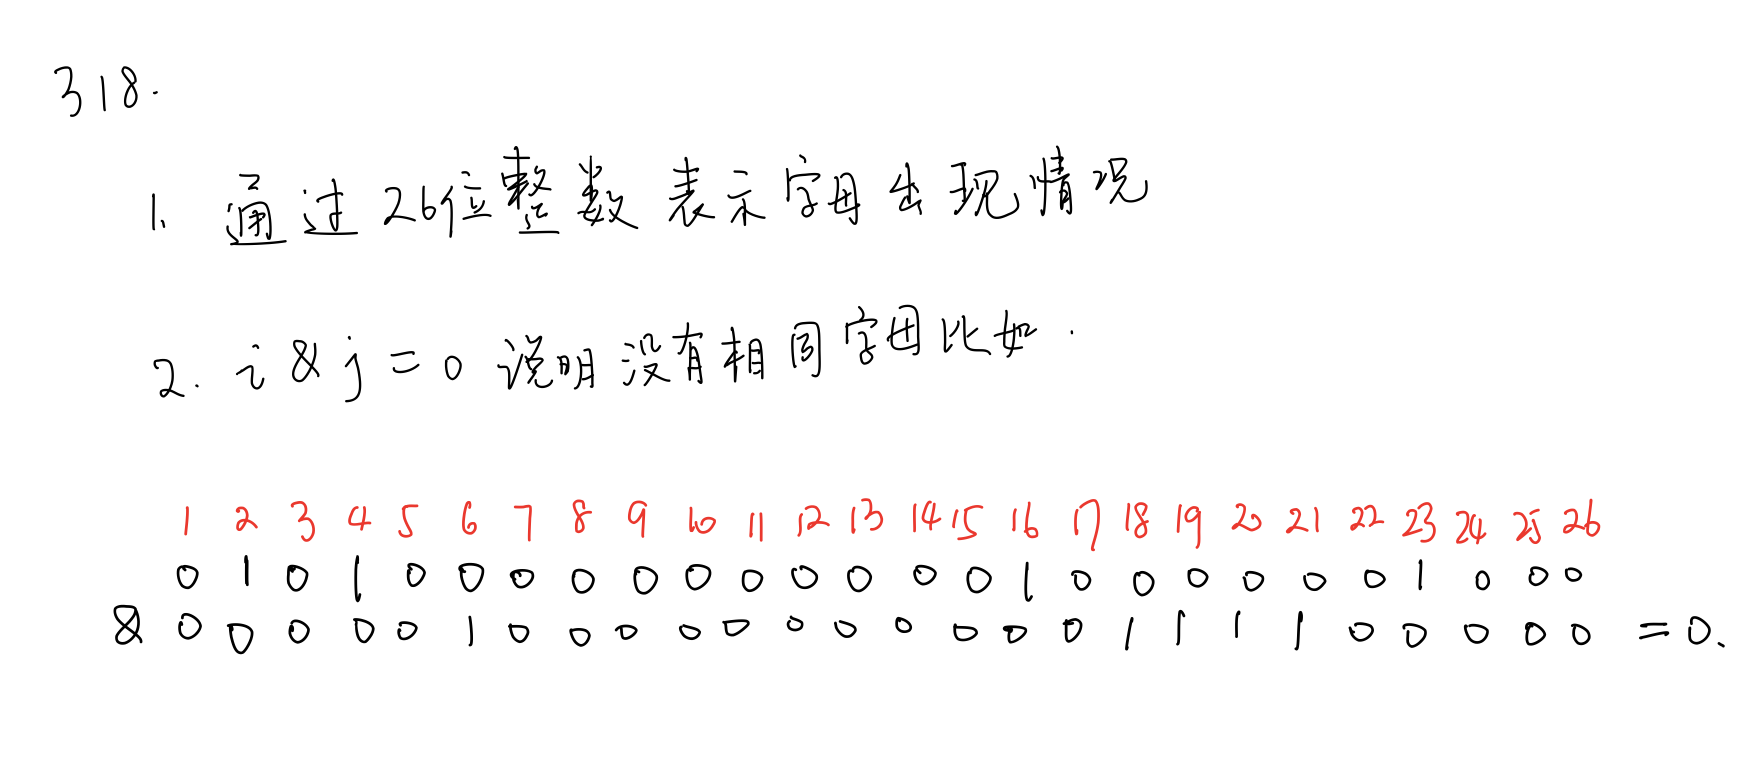 318.
1. 通过26位整数表示字母出现情况
2. i & j = 0 说明没有相同字母比如.
1 2 3 4 5 6 7 8 9 10 11 12 13 14 15 16 17 18 19 20 21 22 23 24 25 26
0 1 0 1 0 0 0 0 0 0 0 0 0 0 0 1 0 0 0 0 0 0 1 0 0 0
& 0 0 0 0 0 1 0 0 0 0 0 0 0 0 0 0 0 1 1 1 1 0 0 0 0 0 = 0.